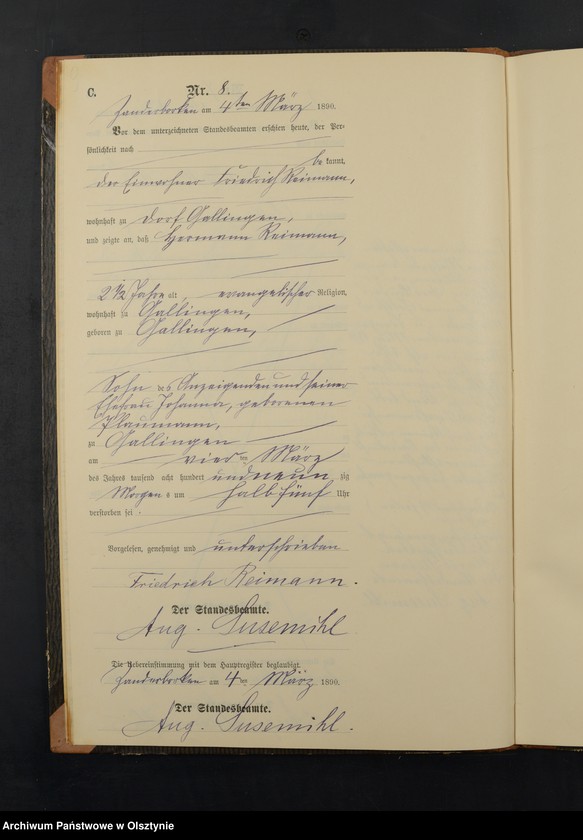 C.
Nr. 8.
Zanderborken am 4ten März 1890.
Vor dem unterzeichneten Standesbeamten erschien heute, der Per-
sönlichkeit nach
bekannt,
der Einwohner Friedrich Reimann,
wohnhaft zu Dorf Gallingen,
und zeigte an, daß Hermann Reimann,
2 1/2 Jahre alt, evangelischer Religion,
wohnhaft zu Gallingen,
geboren zu Gallingen,
Sohn des Anzeigenden und seiner
Ehefrau Johanna, geborenen
Plaumann,
zu Gallingen
am vierten März
des Jahres tausend acht hundert und neun zig
Morgens um halb fünf Uhr
verstorben sei.
Vorgelesen, genehmigt und unterschrieben
Friedrich Reimann.
Der Standesbeamte.
Aug. Susemihl
Die Uebereinstimmung mit dem Hauptregister beglaubigt.
Zanderborken am 4ten März 1890.
Der Standesbeamte.
Aug. Susemihl.
Archiwum Państwowe w Olsztynie